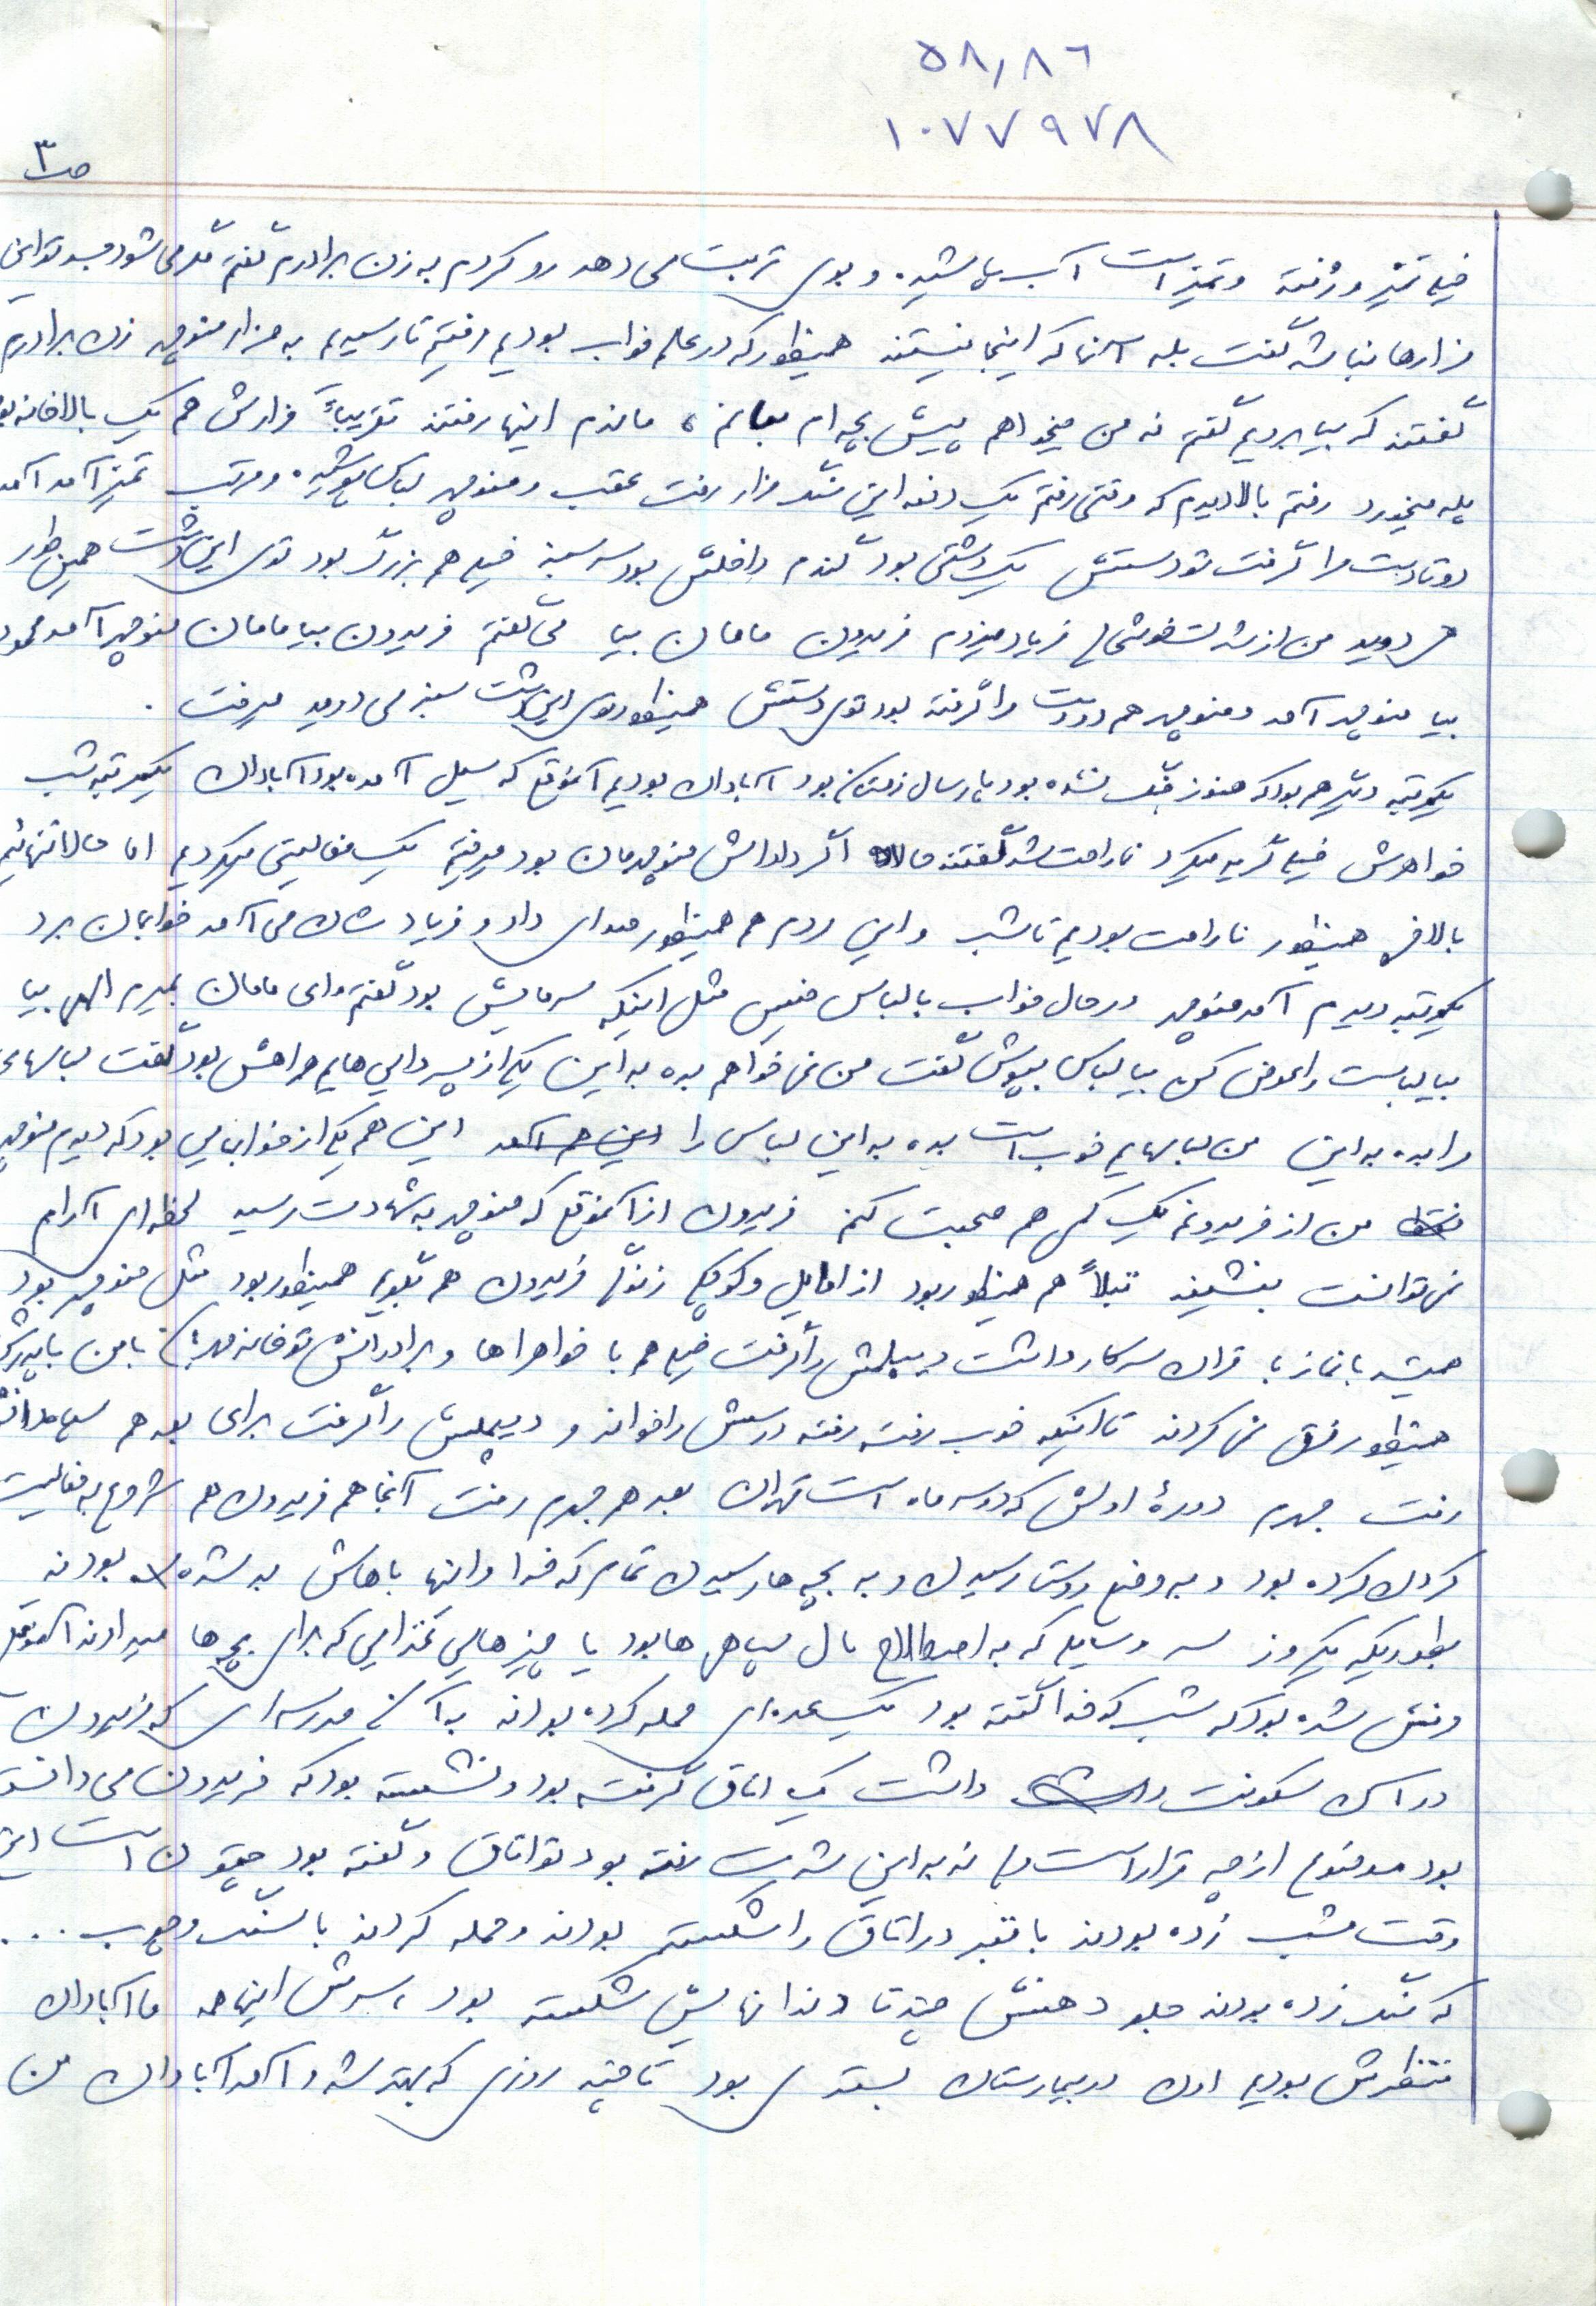 ۵۸/۸۶
۱۰۷۷۹۷۸
ص۳
خیلی تمیز و رفته و تمیز است آب پاشیده و بوی تربت می دهد رو کردم به زن برادرم گفتم مگر می شود تو این
مزارها نباشد گفت بله آنها که اینجا نیستند همینطور که در عالم خواب بودیم رفتیم تا رسیدیم به مزار منوچهر زن برادرم
گفتند که بیا برویم گفتم نه من میخواهم پیش بچه ام بمانم، ماندم اینها رفتند تقریباً مزارش هم یک بالاخانه
پله میخورد رفتم بالا دیدم که وقتی رفتم یک دفعه این سنگ مزار رفت عقب و منوچهر لباس پوشیده و مرتب تمیز آمد آمد
دوتا دست مرا گرفت تو دستش یک دشتی بود گندم داخلش بود سرسبز خیلی هم بزرگ بود توی این دشت همین طور
می دوید من از شدت خوشحالی فریاد میزدم فریدون مامان بیا می گفتم فریدون بیا مامان منوچهر آمد محمود
بیا منوچهر آمد و منوچهر هم دو دست مرا گرفته بود توی دستش همینطور توی این دشت سبز می دوید میرفت .
یکمرتبه دیگر هم بود که هنوز جنگ نشده بود پارسال زمستان بود آبادان بودیم آنموقع که سیل آمده بود آبادان یکمرتبه شب
خواهرش خیلی گریه میکرد ناراحت شد گفتند حالا اگر داداش منوچهرمان بود میرفتیم یک فعالیتی میکردیم اما حالا تنهائیم
بالاخره همینطور ناراحت بودیم تا شب و این مردم هم همینطور صدای داد و فریادشان می آمد خوابمان برد
یکمرتبه دیدم آمد منوچهر در حال خواب با لباس خیس مثل اینکه سرمایش بود گفتم وای مامان بمیرم الهی بیا
بیا لباست را عوض کن بیا لباس بپوش گفت من نمی خواهم بده به این یکی از پسر دایی هایم همراهش بود گفت لباسهای
را بده به این من لباسهایم خوب است بده به این لباس را این هم یکی از خوابهایی بود که دیدم منوچهر
من از فریدونم یک کمی هم صحبت کنم فریدون از آنموقع که منوچهر به شهادت رسید لحظه ای آرام
نمی توانست بنشیند قبلاً هم همینطور بود از اوایل و کوچکی زندگی فریدون هم بگویم همینطور بود مثل منوچهر بود
همیشه با نماز با قرآن سر کار داشت دیپلمش را گرفت خیلی هم با خواهرها و برادرانش تو خانه مهربان با من با پدرش
همینطور فرق نمی کردند تا اینکه خوب رفته رفته درسش را خواند و دیپلمش را گرفت برای بعد هم سپاه دانش
رفت جهرم دوره اولش که دو سه ماه است تهران بعد هم جهرم رفت آنجا هم فریدون هم شروع به فعالیت
کردن کرده بود و به وضع روستا رسیدن و به بچه ها رسیدن تمام که خدا و اینها باهاش بد شده بودند
بطوریکه یکروز سر وسایلی که به اصطلاح مال سپاهی ها بود یا چیزهایی غذایی که برای بچه ها میدادند آنموقع
دعوش شده بود که شب کدخدا گفته بود یک عده ای حمله کرده بودند به آن مدرسه ای که فریدون
در آن سکونت داشت یک اتاق گرفته بود و نشسته بود که فریدون می دانست
بود موضوع از چه قرار است یا نه به این شدت رفته بود تو اتاق و گفته بود چتون است این
وقت شب زده بودند با تبر در اتاق را شکسته بودند و حمله کردند با سنگ و چوب ...
که سنگ زده بودند جلو دهنش چند تا دندانهایش شکسته بود، سرش اینها همه ما آبادان
منتظرش بودیم اون در بیمارستان بستری بود تا چند روزی که بهتر شد و آمد آبادان من